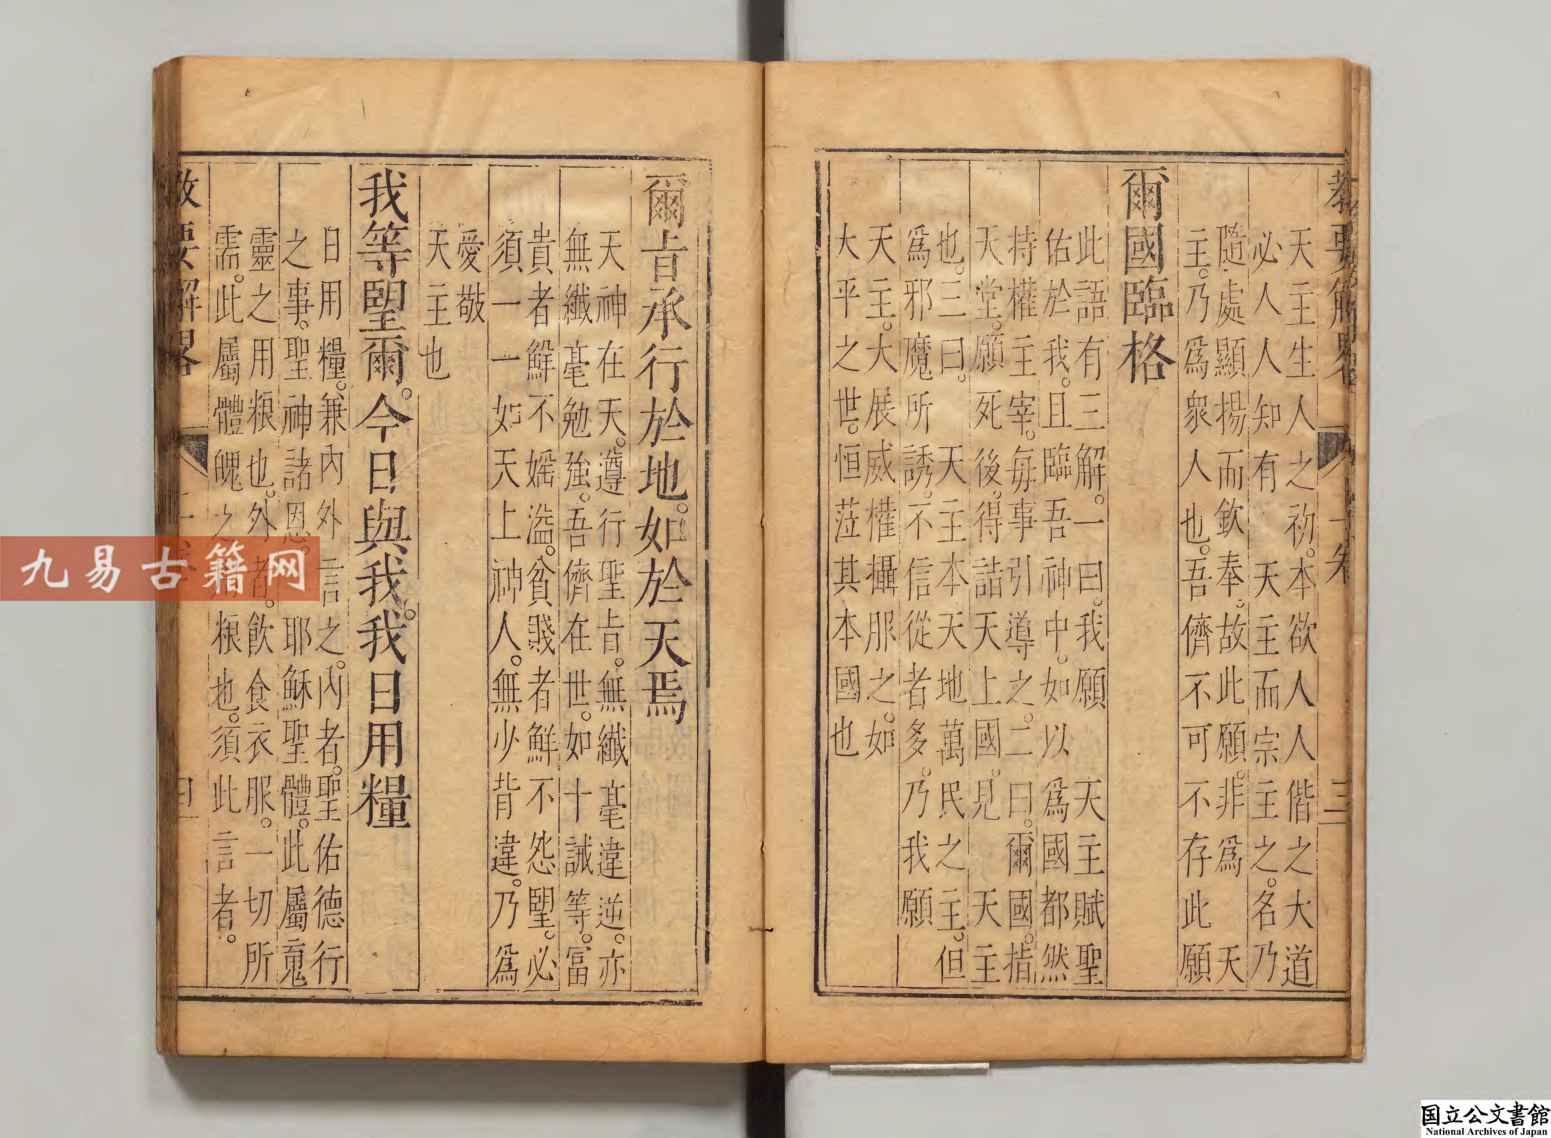 教要解畧
上卷
三
天主生人之初。本欲人人偕之大道
必人人知有　天主而宗主之。名乃
隨處顯揚而欽奉。故此願。非爲　天
主。乃爲衆人也。吾儕不可不存此願
爾國臨格
此語有三解。一曰。我願　天主賦聖
佑於我。且臨吾神中。如以爲國都然
持權主宰。每事引導之。二曰。爾國。指
天堂。願死後。得詣天上國。見　天主
也。三曰。　天主本天地萬民之主。但
爲邪魔所誘。不信從者多。乃我願
天主。大展威權攝服之。如
大平之世。恒蒞其本國也
爾旨承行於地。如於天焉
天神在天。遵行聖旨。無纖毫違逆。亦
無纖毫勉強。吾儕在世。如十誡等。富
貴者鮮不婬溢。貧賤者鮮不怨朢。必
須一一如天上神人。無少背違。乃爲
愛敬
天主也
我等朢爾。今日與我。我日用糧
日用糧。兼內外言之。內者。聖佑德行
之事。聖神諸恩。耶穌聖體。此屬䰟
靈之用粮也。外者。飲食衣服。一切所
需。此屬體魄之粮也。須此言者。
教要解畧
四
九易古籍网
国立公文書館
National Archives of Japan